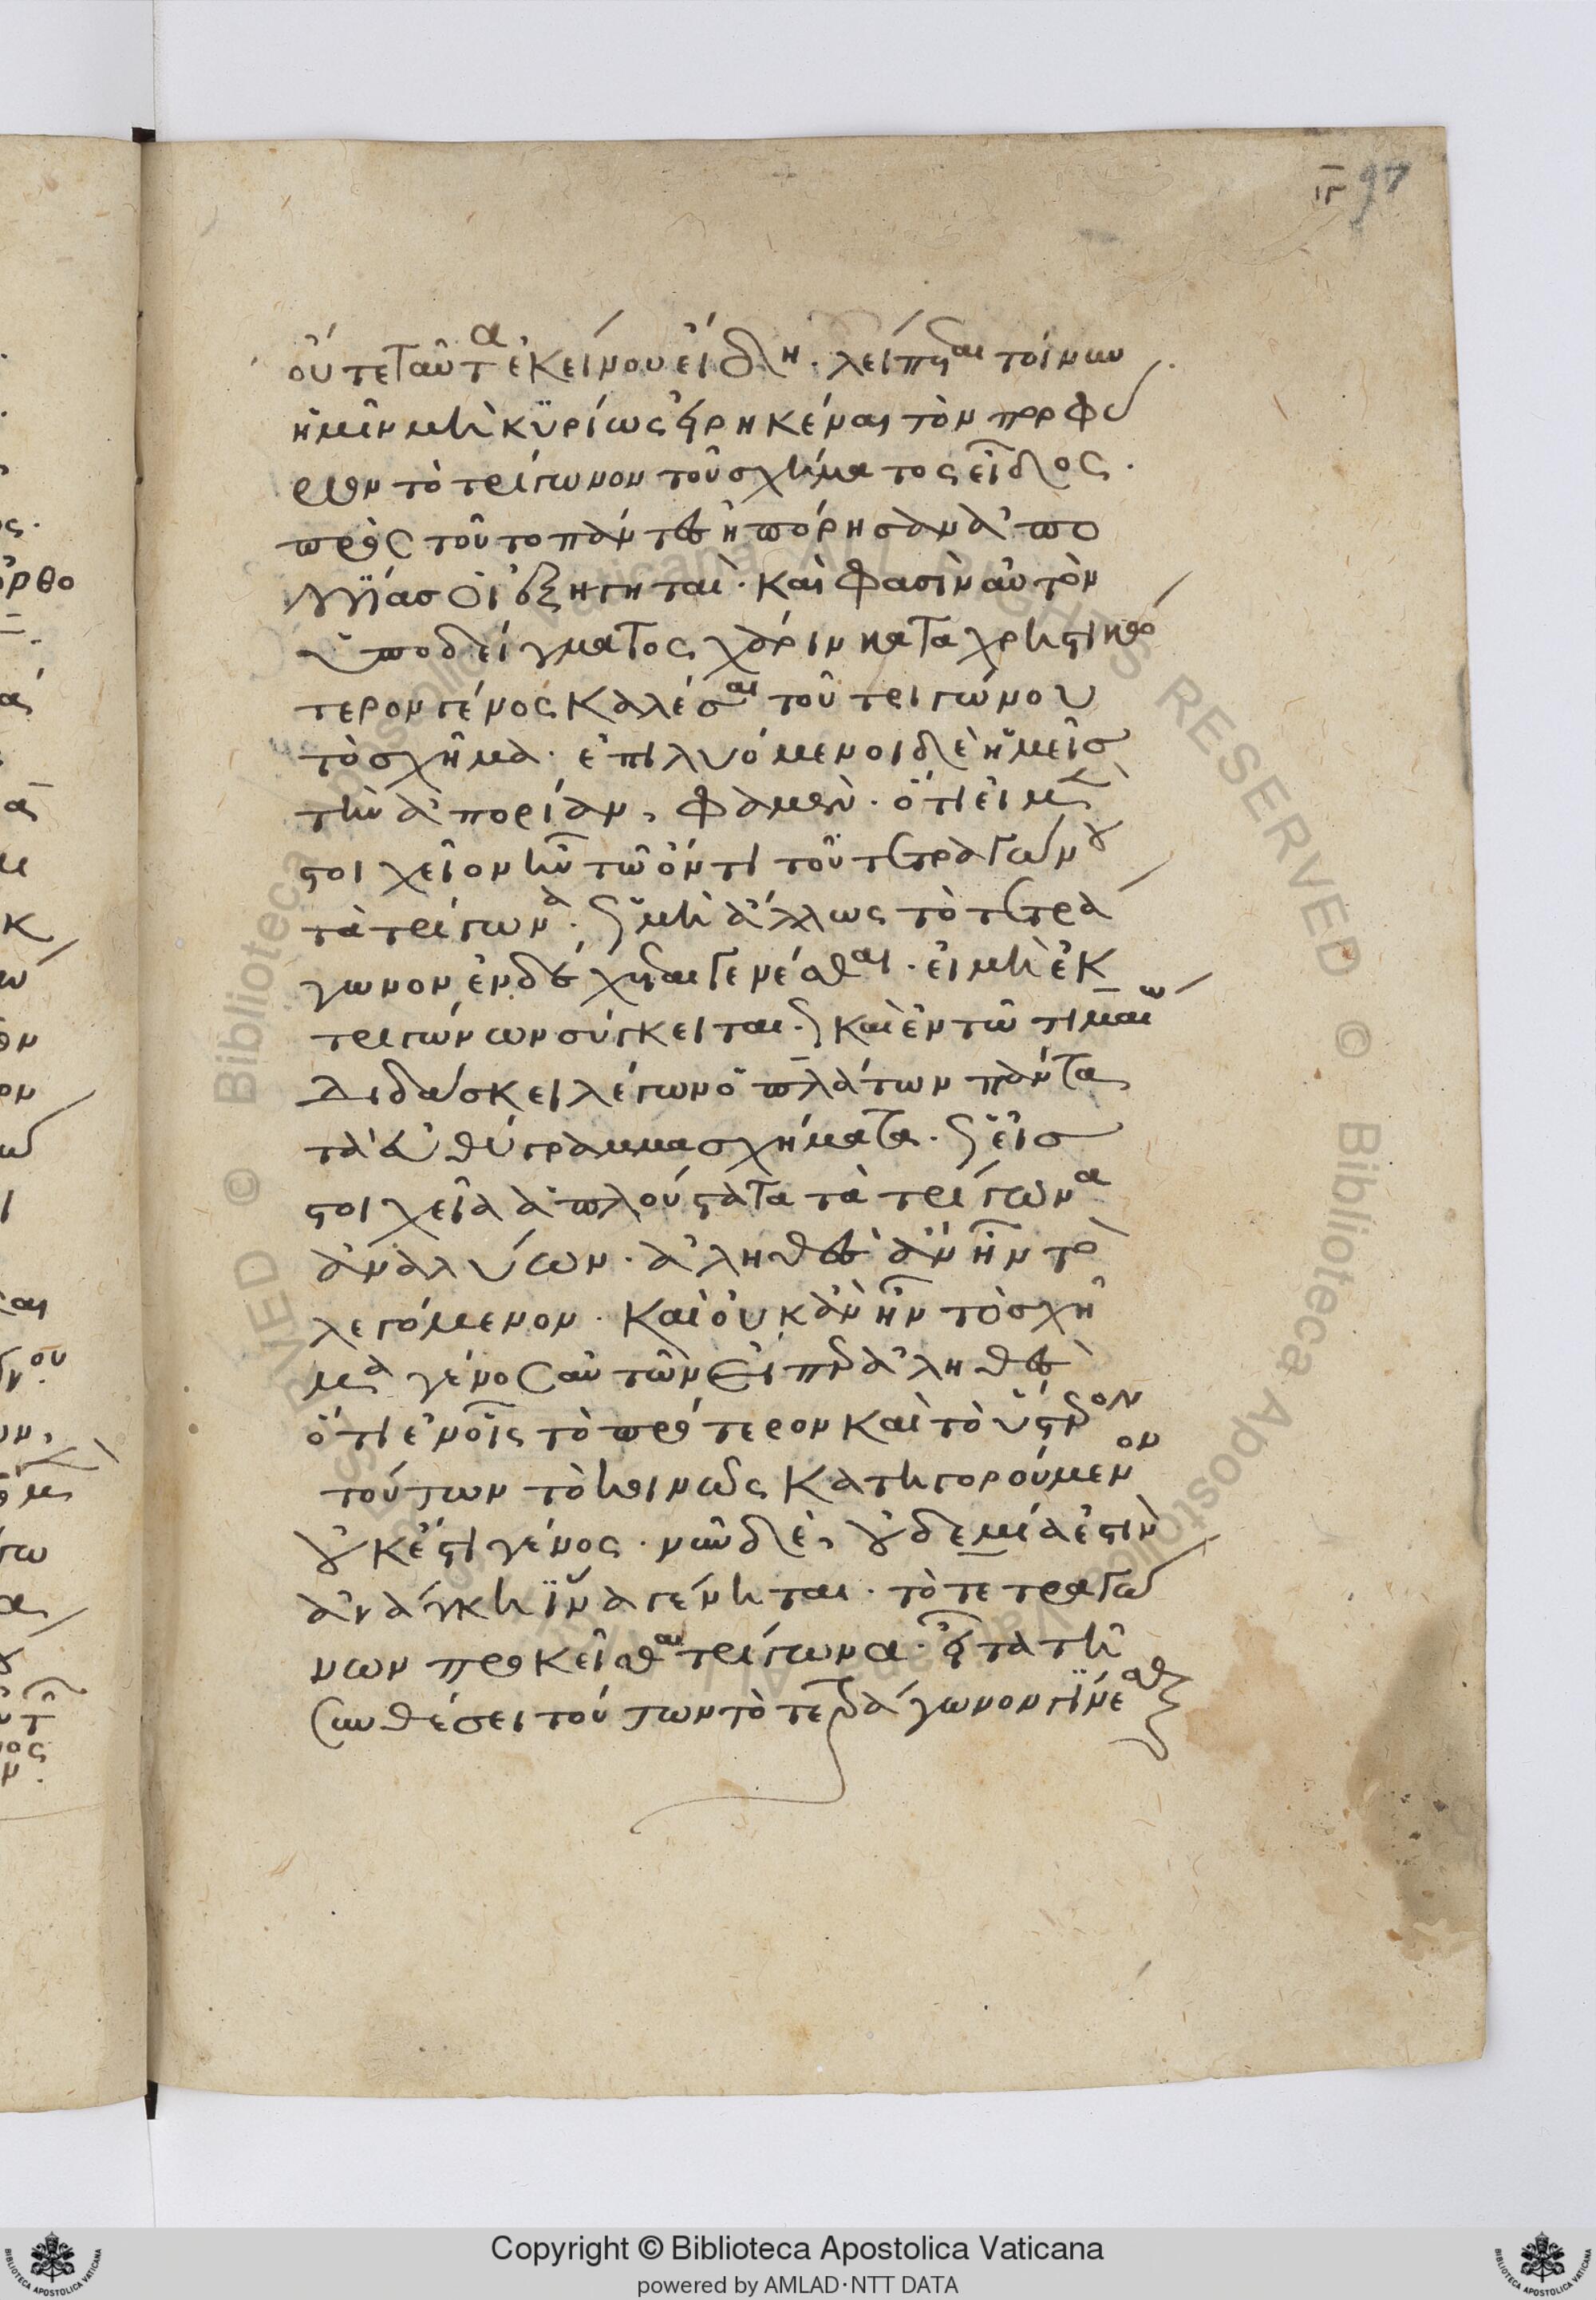 ιγ 97
οὔτε ταῦτα ἐκείνου εἴδη. λείπεται τοίνυν
ἡμῖν μὴ κυρίως εἰρηκέναι τὸν πορφύ
ριον τὸ τρίγωνον τοῦ σχήματος εἶδος.
πρὸς τοῦτο πάντες ἠπόρησαν ἀπο
λογίας οἱ ἐξηγηταί. καὶ φασὶν αὐτὸν
ὑποδείγματος χάριν καταχρηστικώ
τερον γένος καλέσαι τοῦ τριγώνου
τὸ σχῆμα. ἐπιλυόμενοι δὲ ἡμεῖς
τὴν ἀπορίαν, φαμὲν. ὅτι εἰ μὲν
στοιχεῖον ἦν τῶ ὄντι τοῦ τετραγώνου
τὰ τρίγωνα. καὶ μὴ ἄλλως τὸ τετρά
γωνον ἐνδέχεται γενέσθαι. εἰ μὴ ἐκ
τριγώνων σύγκειται. καὶ ἐν τῶ τιμαίω
διδάσκει λέγων ὁ πλάτων πάντα
τὰ εὐθύγραμμα σχήματα. καὶ εἰς
στοιχεῖα ἁπλούστατα τὰ τρίγωνα
ἀναλύων. ἀληθὲς ἂν ἦν τὸ
λεγόμενον. καὶ οὐκ ἂν ἦν τὸ σχῆ
μα γένος αὐτῶν εἴπερ ἀληθὲς
ὅτι ἐν οἷς τὸ πρότερον καὶ τὸ ὕστερον
τούτων τὸ κοινῶς κατηγορούμενον
οὐκ ἔστι γένος. νῦν δὲ, οὐδεμία ἐστὶν
ἀνάγκη ἵνα γένηται. τὸ τετραγώ
νων προκεῖσθαι τρίγωνα. εἶτα τῆ
συνθέσει τούτων τὸ τετράγωνον γίνεσθαι